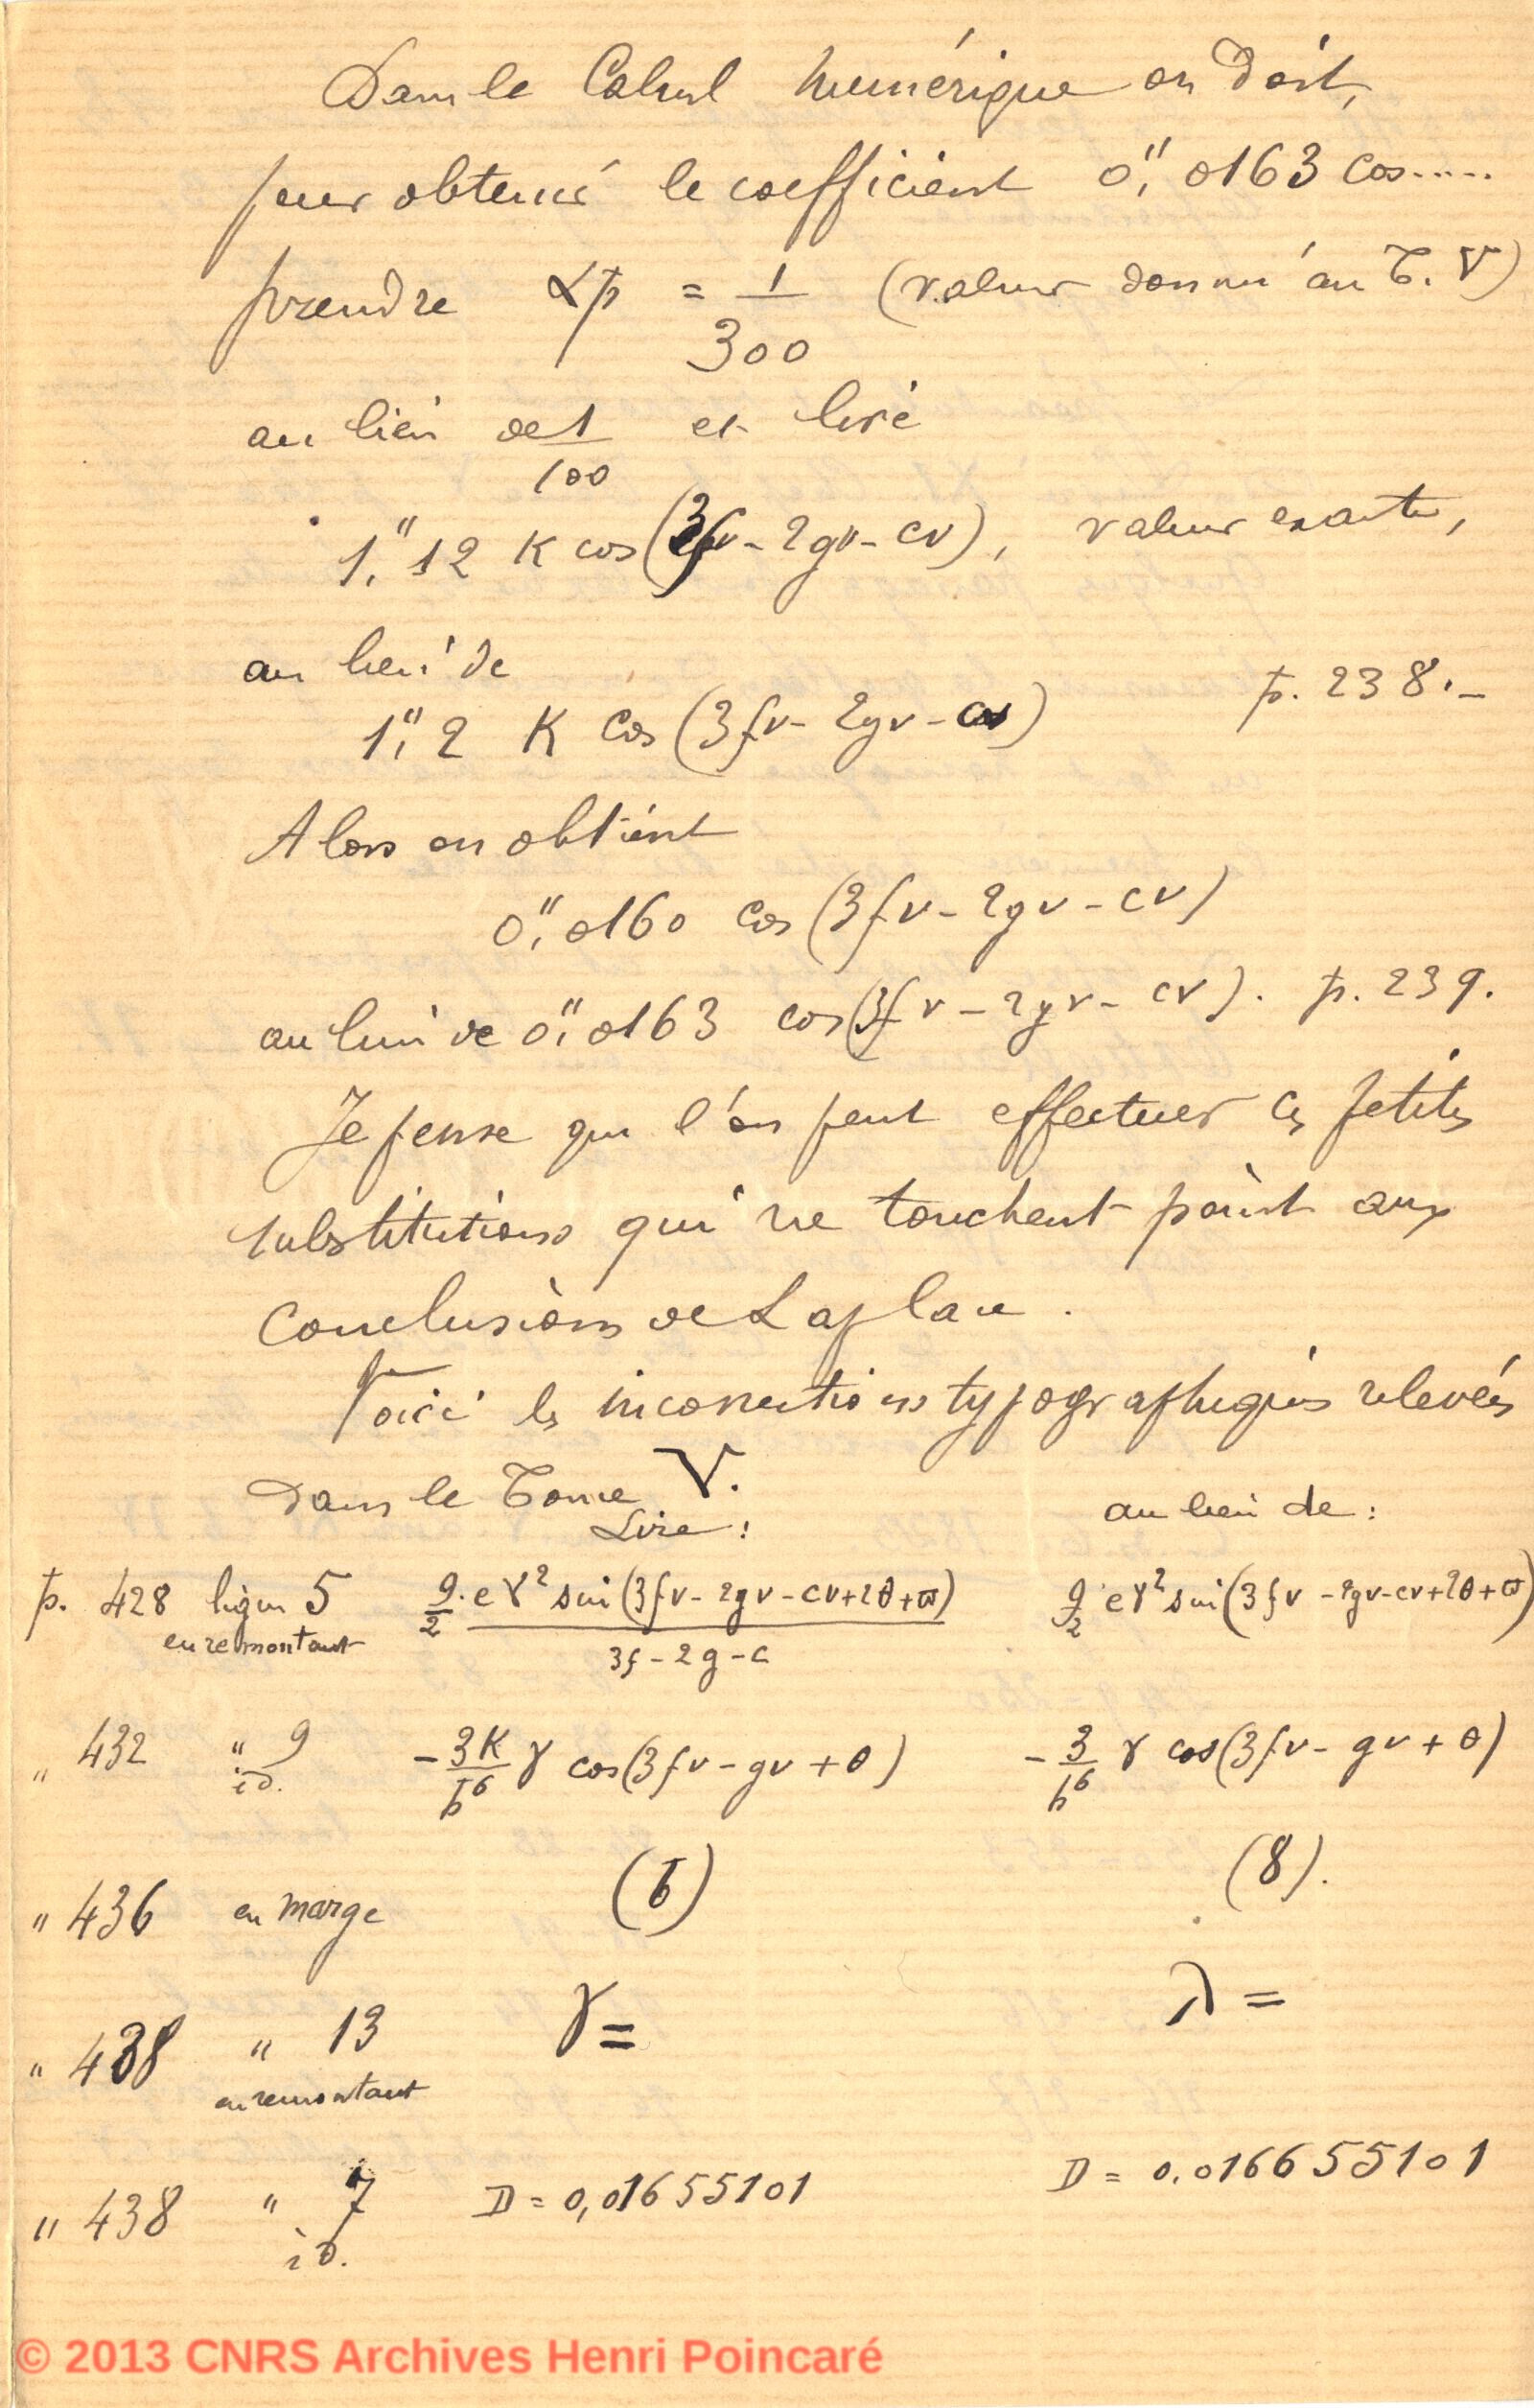 Dans le Calcul numérique on doit,
pour obtenir le coefficient 0",0163 cos.....
prendre αp = 1/300 (valeur donnée au T. V)
au lieu de 1/100 et lire
1",12 K cos(3fv - 2gv - cv), valeur exacte,
au lieu de
1",2 K cos(3fv - 2gv - cv) p. 238.-
Alors on obtient
0",0160 cos(3fv - 2gv - cv)
au lieu de 0",0163 cos(3fv - 2gv - cv). p. 239.
Je pense que l'on peut effectuer ces petites
substitutions qui ne touchent point aux
conclusions de Laplace.
Voici les incorrections typographiques relevées
dans le Tome V.
Lire: au lieu de:
p. 428 ligne 5 en remontant 9/2 . eγ² sin(3fv - 2gv - cv + 2θ + ϖ) / 3f - 2g - c 9/2 eγ² sin(3fv - 2gv - cv + 2θ + ϖ)
" 432 " 9 id. - 3K/b⁶ γ cos(3fv - gv + θ) - 3/b⁶ γ cos(3fv - gv + θ)
" 436 en marge (6) (8).
" 438 " 13 en remontant γ = λ =
" 438 " 7 id. D = 0,01655101 D = 0.016655101
© 2013 CNRS Archives Henri Poincaré